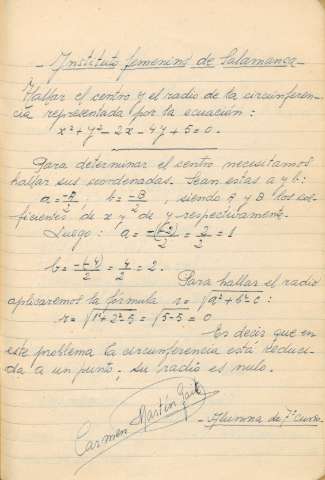 - Instituto femenino de Salamanca -
Hallar el centro y el radio de la circunferen-
cia representada por la ecuación:
x² + y² - 2x - 4y + 5 = 0.
Para determinar el centro necesitamos
hallar sus coordenadas. Sean estas a y b:
a = -A/2, b = -B/2, siendo A y B los coe-
ficientes de x y de y respectivamente.
Luego: a = -(-2)/2 = 2/2 = 1
b = -(-4)/2 = 4/2 = 2.
Para hallar el radio
aplicaremos la fórmula r = √a²+b²-c:
r = √1²+2²-5 = √5-5 = 0
Es decir que en
este problema la circunferencia está reduci-
da a un punto; su radio es nulo.
Carmen Martín Gaite
- Alumna de 7º curso -